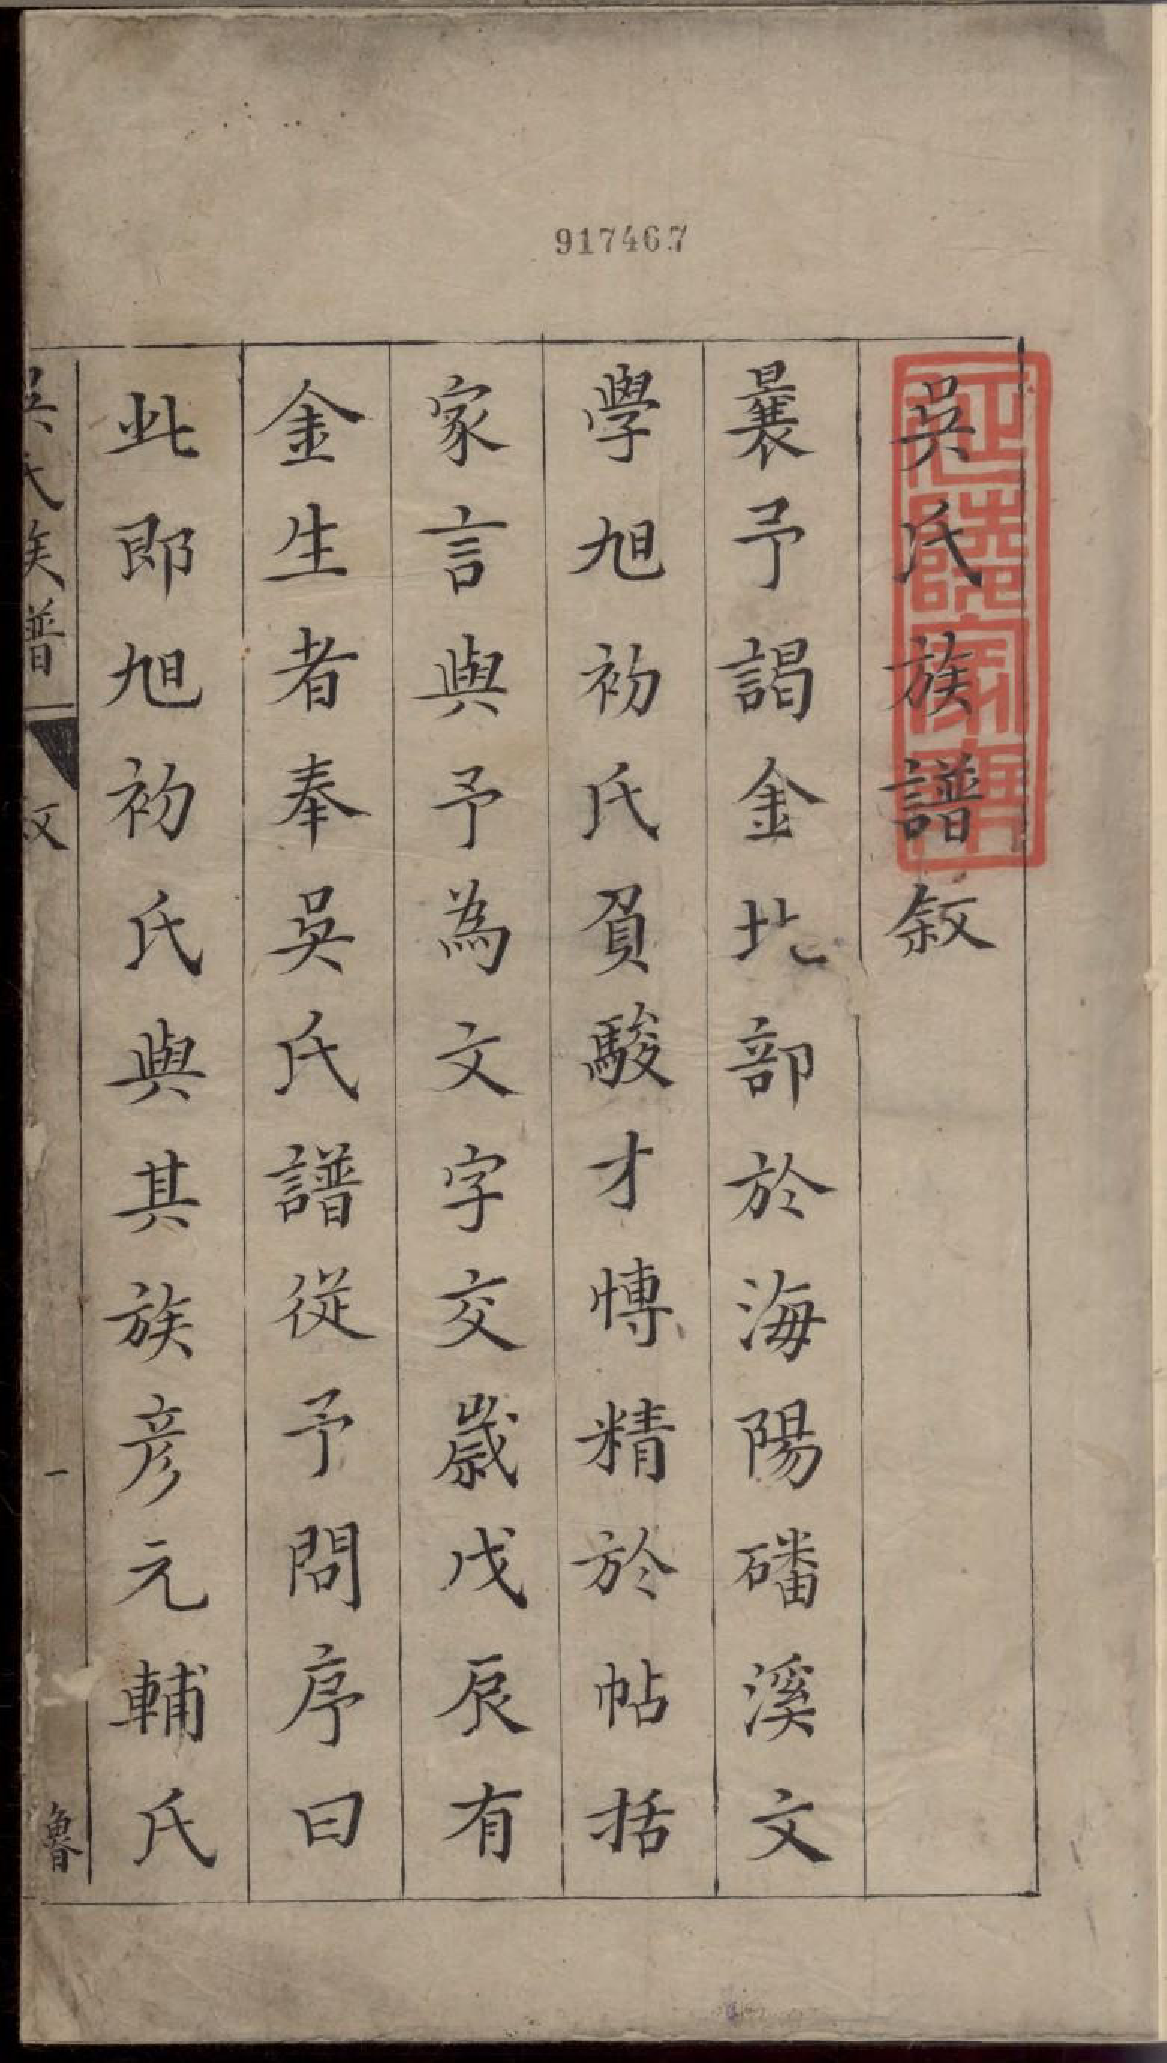 917467
吳氏族譜叙
曩予謁金比部於海陽磻溪文
學旭初氏負駿才慱精於帖括
家言與予為文字交歲戊辰有
金生者奉吳氏譜從予問序曰
此即旭初氏與其族彦元輔氏
吳氏族譜 叙 一 魯